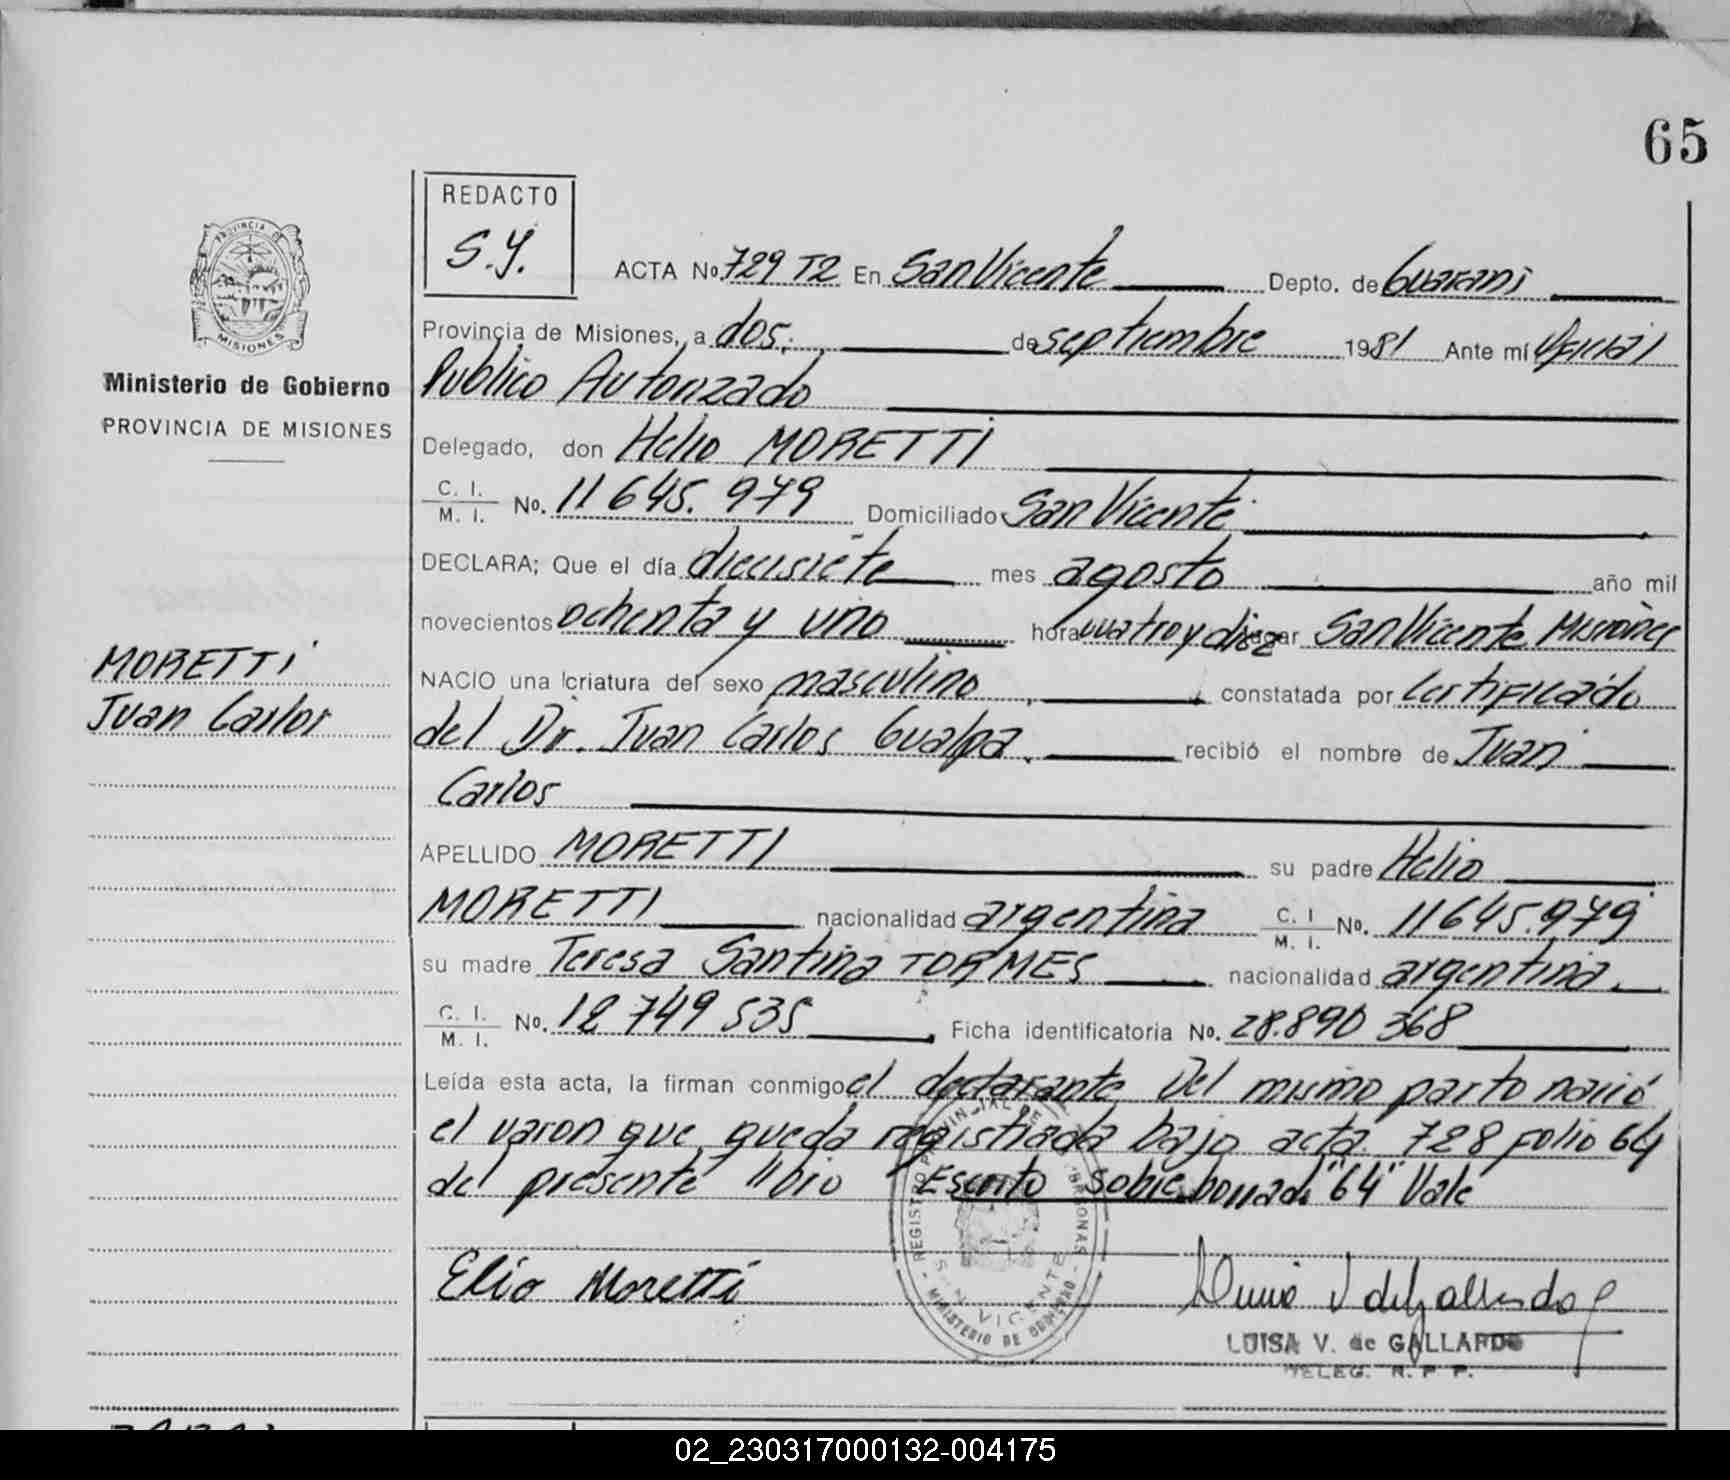 65
REDACTO
S.Y.
PROVINCIA DE
MISIONES
Ministerio de Gobierno
PROVINCIA DE MISIONES
ACTA No. 729 T2 En San Vicente Depto. de Guarani
Provincia de Misiones, a dos. de septiembre 1981 Ante mí Oficial
Publico Autorizado
Delegado, don Helio MORETTI
C. I. / M. I. No. 11 645.979 Domiciliado San Vicente
DECLARA; Que el día diecisiete mes agosto año mil
novecientos ochenta y uno hora cuatro y diez lugar San Vicente Misiones
NACIO una criatura del sexo masculino, constatada por Certificado
del Dr. Juan Carlos Gualpa. recibió el nombre de Juan
Carlos
APELLIDO MORETTI su padre Helio
MORETTI nacionalidad argentina C. I / M. I. No. 11645.979
su madre Teresa Santina TORMES nacionalidad argentina.
C. I. / M. I. No. 12 749 535 Ficha identificatoria No. 28.890 368
Leída esta acta, la firman conmigo el declarante Del mismo parto nació
el varon que queda registrada bajo acta 728 folio 64
del presente libro Escrito sobre borrado "64" Vale
MORETTI
Juan Carlos
Elio Moretti
REGISTRO PROVINCIAL DE
SAN VICENTE
MINISTERIO DE GOBIERNO
LUISA V. de GALLARDO
DELEG. R. P P.
02_230317000132-004175